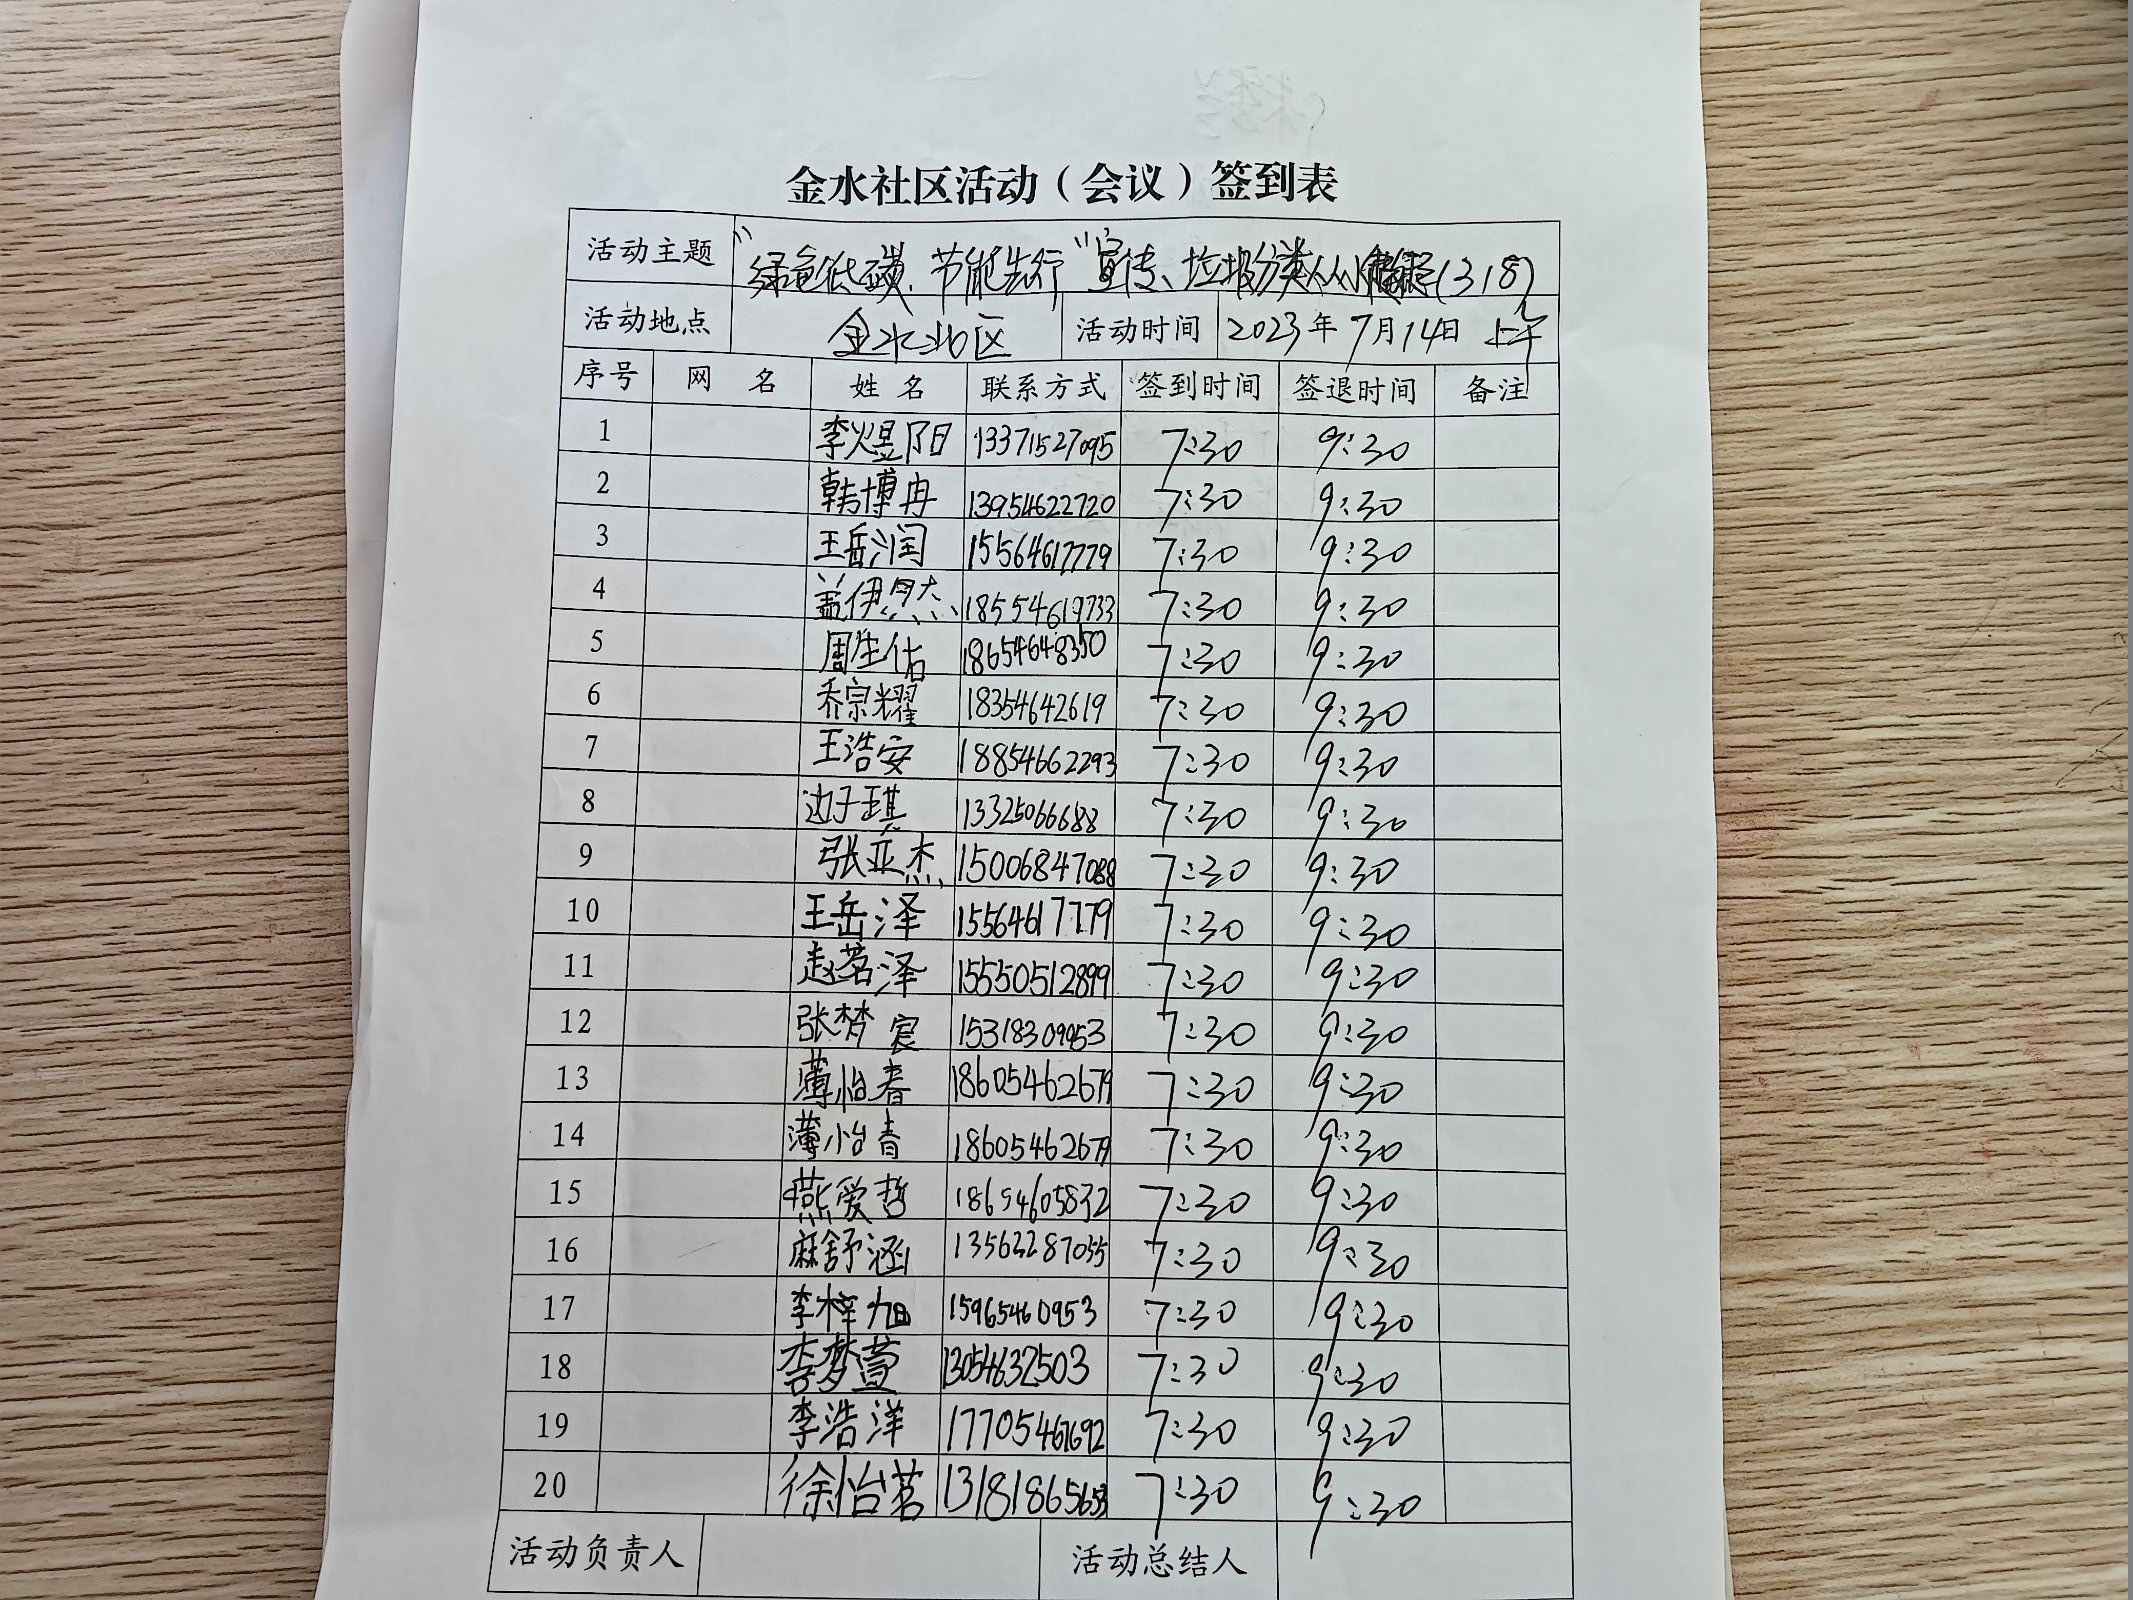 金水社区活动（会议）签到表
活动主题 "绿色低碳、节能先行"宣传、垃圾分类从(318)
活动地点 金水北区 活动时间 2023年7月14日 上午
序号 网 名 姓 名 联系方式 签到时间 签退时间 备注
1 李煜阳 13371527095 7:30 9:30
2 韩博冉 13954622720 7:30 9:30
3 王岳润 15564617779 7:30 9:30
4 盖伊然 18554619733 7:30 9:30
5 周生佑 18654648350 7:30 9:30
6 乔宗耀 18354642619 7:30 9:30
7 王浩安 18854662293 7:30 9:30
8 边子琪 13325066688 7:30 9:30
9 张亚杰 15006847088 7:30 9:30
10 王岳泽 15564617779 7:30 9:30
11 赵茗泽 15550512899 7:30 9:30
12 张梦宸 15318309953 7:30 9:30
13 薄怡春 18605462679 7:30 9:30
14 薄怡青 18605462679 7:30 9:30
15 燕爱哲 18654605832 7:30 9:30
16 麻舒涵 13562287055 7:30 9:30
17 李梓旭 15965460953 7:30 9:30
18 李梦萱 13054632503 7:30 9:30
19 李浩洋 17705461692 7:30 9:30
20 徐怡茗 13181865653 7:30 9:30
活动负责人 活动总结人